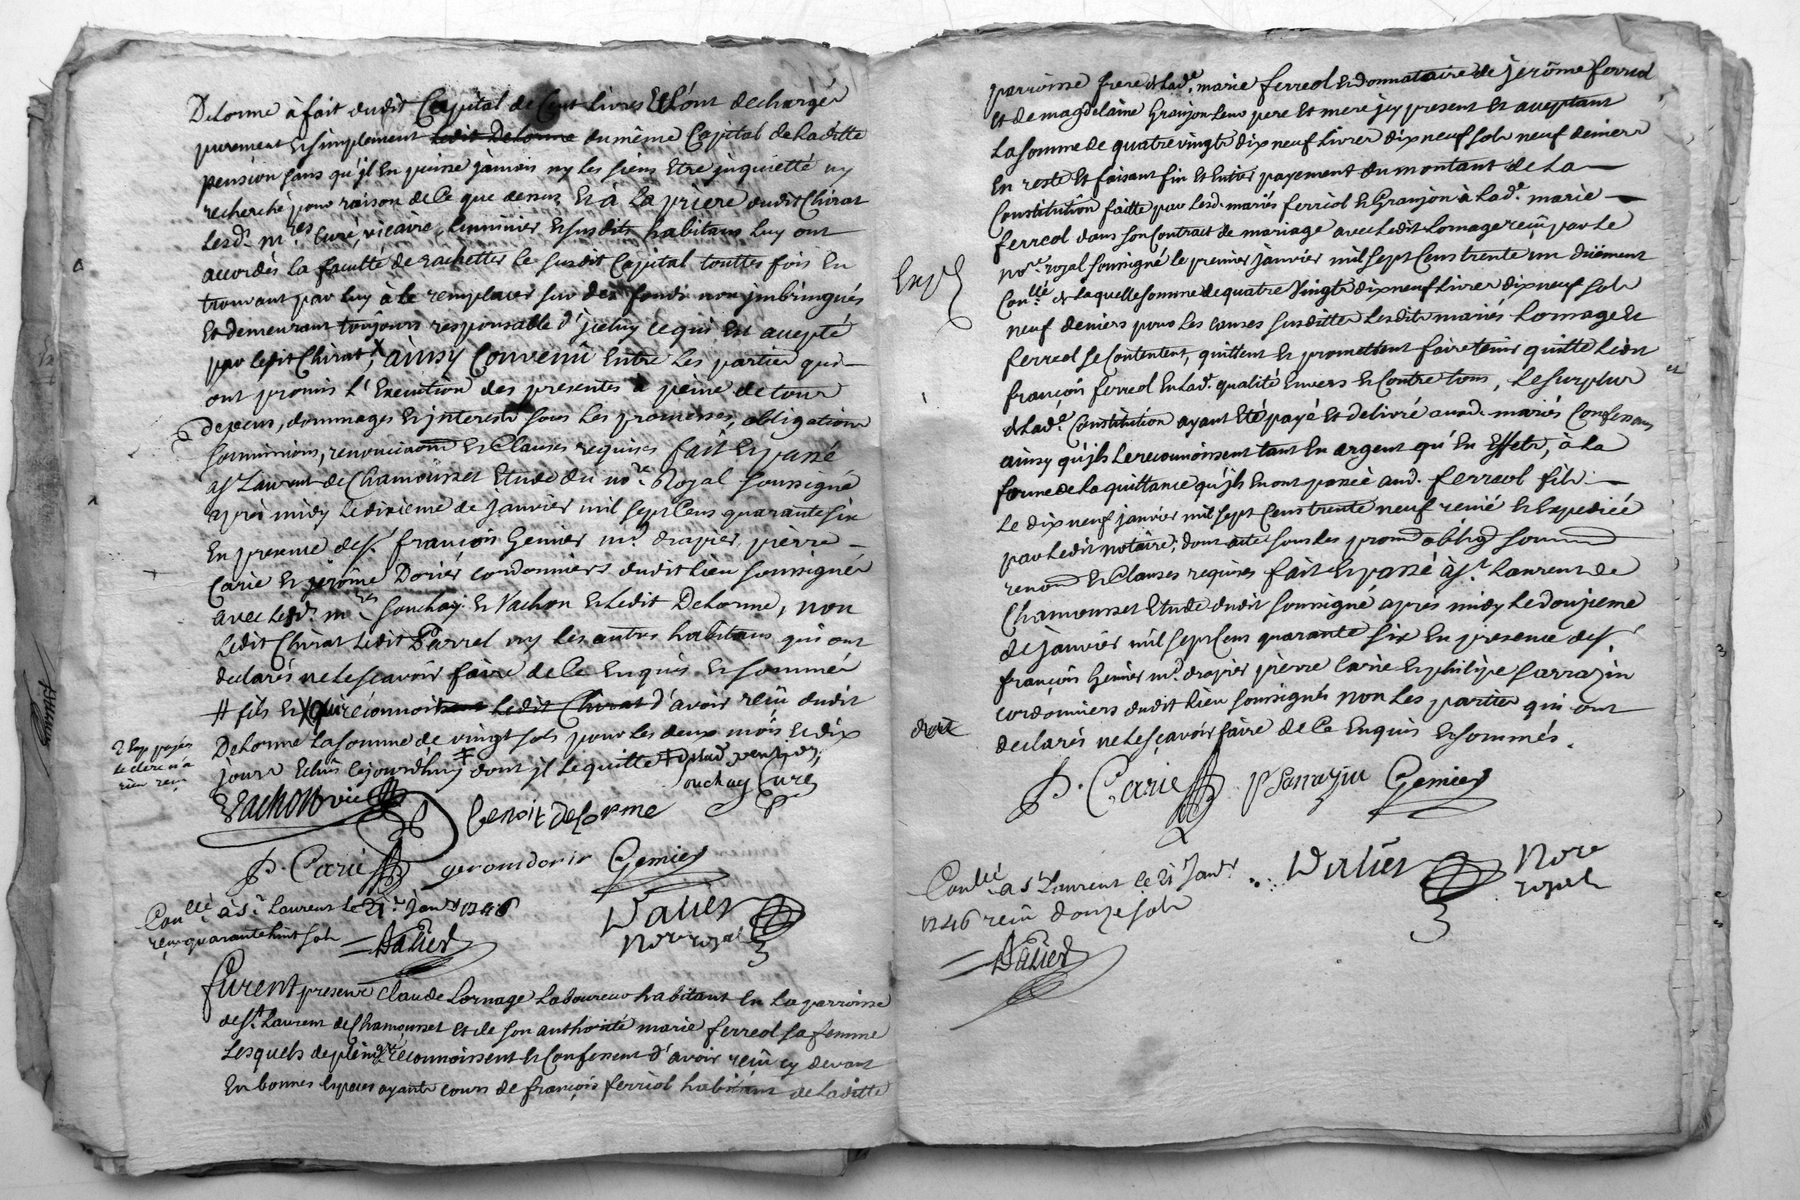 Delorme à fait dudit Capital de Cent livres Et l'ont dechargé
purement et simplement ledit Delorme du même Capital de laditte
pension sans qu'jl En puisse jamais ny les siens Etre jnquietté ny
recherché pour raison de Ce que dessus Et à La priere dudit Chirat
lesd. mres Curé, vicaire, Luminier Et susdits habitans luy ont
accordés la faculté de rachetter le susdit Capital touttes fois En
trouvant par luy à le remplacer sur des fonds non jmbringués
Et demeurant toujours responsable d'jceluy ce qui Est accepté
par ledit Chirat, ainsy Convenû Entre les parties qui
ont promis l'Execution des presentes à peine de tous
depens, dommages et jnterests sous les promesses, obligations
soumissions, renonciaons et Clauses requises fait et passé
à St Laurent de Chamousset Etude du nore Royal soussigné
après midy le dixieme de janvier mil sept Cens quarante six
En presence de sr françois Gemier md drapier, pierre
Carie et jerôme Dorier cordonniers dudit lieu soussignés
avec lesd. mres souchay et Vachon et ledit Delorme, non
ledit Chirat ledit Parrel ny les autres habitans qui ont
declarés ne le sçavoir faire de Ce Enquis et sommés
# fils et qui réconnoit ledit Chirat d'avoir reçû dudit
Delorme la somme de vingt sols pour les deux mois et dix
jours Echûs cejourd'huy dont jl le quitte
2 Exp payés
le clerc n'a
rien reçu
souchay Curé
Vachon vic. Benoit delorme
P. Carie geromdorir Gemier
Conllé à St Laurent le 21e Janvr 1746
reçu quarante huit sols
Valier Valier
Nore royal
furent presens Claude Lornage Laboureur habitant En La parroisse
de St Laurent de Chamousset et de son authorité marie ferreol sa femme
Lesquels de plein gré réconnoissent et Confessent d'avoir reçû cy devant
En bonnes Especes ayants cours de françois ferreol habitant de laditte
parroisse frere de lade marie ferreol et donnataire de jerôme ferreol
et de magdelaine Granjon leur pere Et mere jcy present Et acceptant
La somme de quatre vingts dix neuf livres dix neuf sols neuf deniers
En reste Et faisant fin Et Entier payement du montant de La
Constitution faitte par lesd. mariés ferreol et Granjon à lade marie
ferreol dans son Contract de mariage avec ledit Lornage reçû par le
nore royal soussigné le premier janvier mil sept Cens trente un duëment
Conllé de laquelle somme de quatre Vingts dix neuf livres dix neuf sols
neuf deniers pour les causes susdittes lesdits mariés Lornage et
ferreol se Contentent, quittent et promettent faire tenir quitte ledit
françois ferreol En lad. qualité Envers et Contre tous, le surplus
de lade Constitution ayant Eté payé et delivré ausd. mariés Confessans
ainsy qu'jls le reconnoissent tant En argent qu'En Effets, à la
forme de la quittance qu'jls En ont passée aud. ferreol fils
le dix neuf janvier mil sept Cens trente neuf reçué et Expediée
par ledit notaire, dont acte sous les promons obligons soumons
renons et Clauses requises fait et passé à St Laurent de
Chamousset Etude dudit soussigné après midy le douzieme
de janvier mil sept Cens quarante six En presence de sr
françois Gemier md drapier pierre Carie et philipe sarrazin
cordonniers dudit lieu soussignés non les parties qui ont
declarés ne le sçavoir faire de Ce Enquis et sommés.
P. Carie P Sarrazin Gemier
Conllé à St Laurent le 21 Janvr
1746 reçû douze sols
Valier Nore
royal
Valier